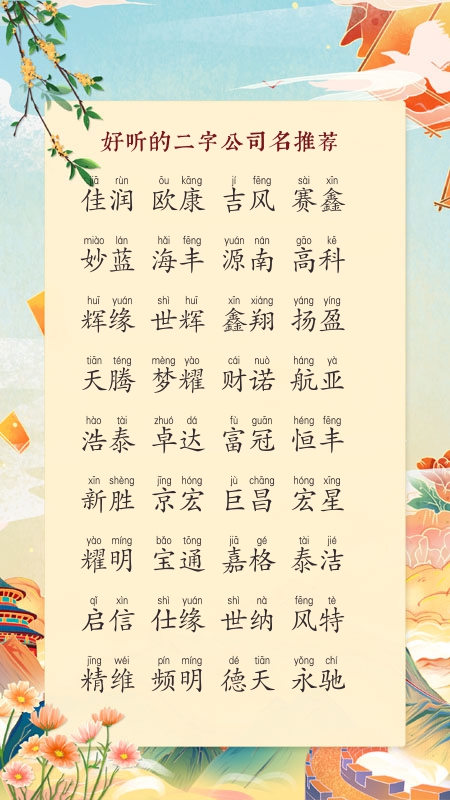 好听的二字公司名推荐
jiā rùn ōu kāng jí fēng sài xīn
佳润 欧康 吉风 赛鑫
miào lán hǎi fēng yuán nán gāo kē
妙蓝 海丰 源南 高科
huī yuán shì huī xīn xiáng yáng yíng
辉缘 世辉 鑫翔 扬盈
tiān téng mèng yào cái nuò háng yà
天腾 梦耀 财诺 航亚
hào tài zhuó dá fù guān héng fēng
浩泰 卓达 富冠 恒丰
xīn shèng jīng hóng jù chāng hóng xīng
新胜 京宏 巨昌 宏星
yào míng bǎo tōng jiā gé tài jié
耀明 宝通 嘉格 泰洁
qǐ xìn shì yuán shì nà fēng tè
启信 仕缘 世纳 风特
jīng wéi pín míng dé tiān yǒng chí
精维 频明 德天 永驰